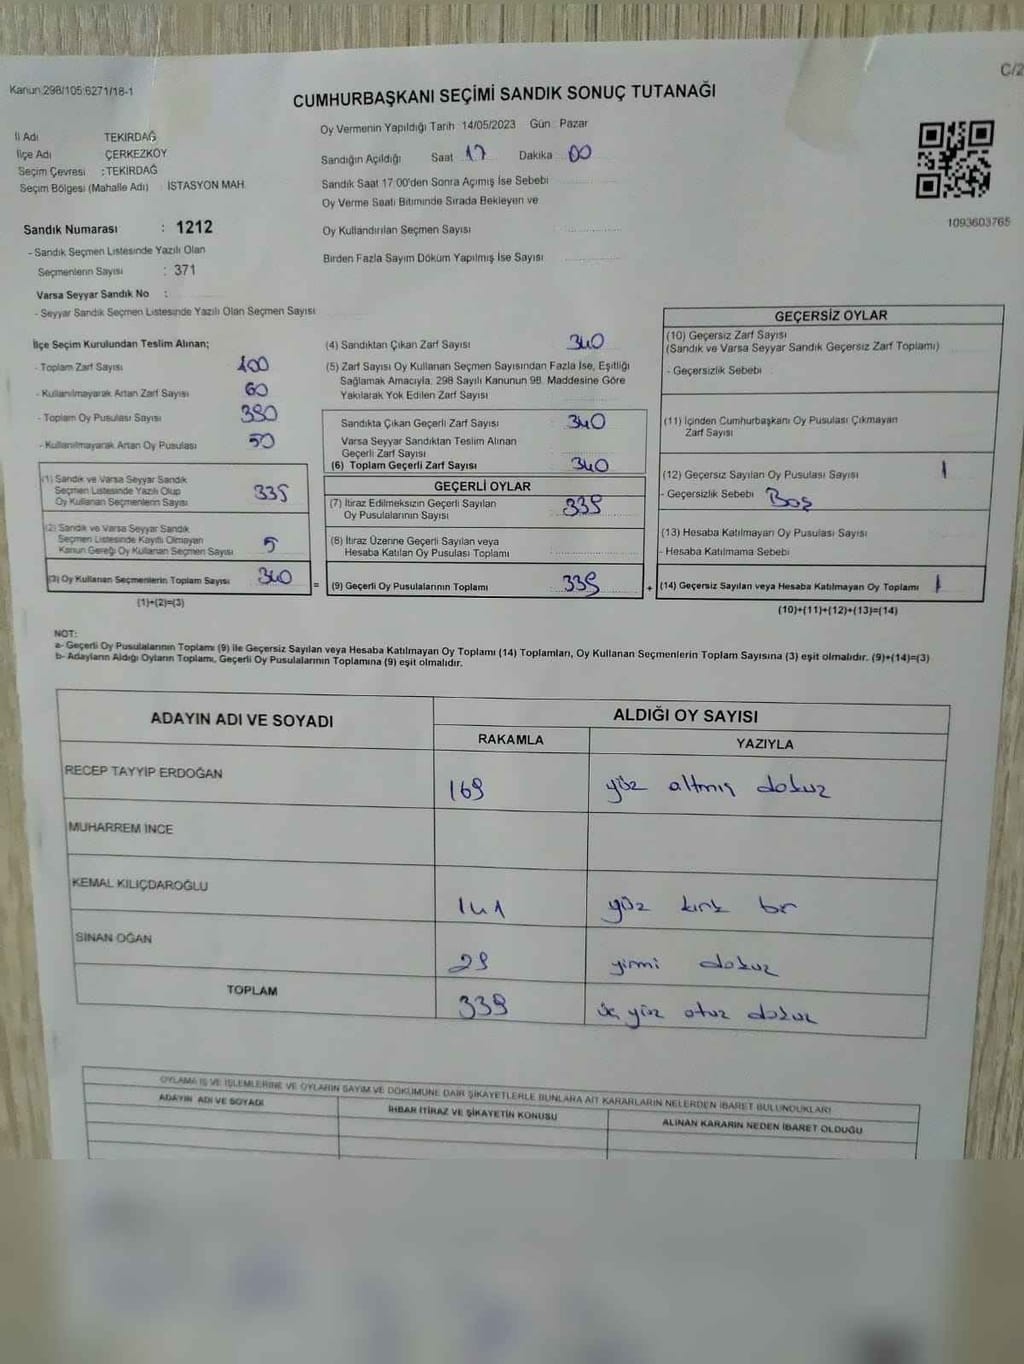 Kanun:298/105;6271/18-1
C/2
CUMHURBAŞKANI SEÇİMİ SANDIK SONUÇ TUTANAĞI
İl Adı TEKİRDAĞ
İlçe Adı ÇERKEZKÖY
Seçim Çevresi :TEKİRDAĞ
Seçim Bölgesi (Mahalle Adı) İSTASYON MAH.
Oy Vermenin Yapıldığı Tarih :14/05/2023 Gün : Pazar
Sandığın Açıldığı Saat 17 Dakika 00
Sandık Saat 17:00'den Sonra Açımış İse Sebebi
Oy Verme Saati Bitiminde Sırada Bekleyen ve
Oy Kullandırılan Seçmen Sayısı
Birden Fazla Sayım Döküm Yapılmış İse Sayısı
1093603765
Sandık Numarası : 1212
- Sandık Seçmen Listesinde Yazılı Olan
Seçmenlerin Sayısı : 371
Varsa Seyyar Sandık No :
- Seyyar Sandık Seçmen Listesinde Yazılı Olan Seçmen Sayısı:
İlçe Seçim Kurulundan Teslim Alınan;
- Toplam Zarf Sayısı 400
- Kullanılmayarak Artan Zarf Sayısı 60
- Toplam Oy Pusulası Sayısı 390
- Kullanılmayarak Artan Oy Pusulası 50
(1) Sandık ve Varsa Seyyar Sandık
Seçmen Listesinde Yazılı Olup
Oy Kullanan Seçmenlerin Sayısı 335
(2) Sandık ve Varsa Seyyar Sandık
Seçmen Listesinde Kayıtlı Olmayan
Kanun Gereği Oy Kullanan Seçmen Sayısı 5
(3) Oy Kullanan Seçmenlerin Toplam Sayısı 340 =
(1)+(2)=(3)
(4) Sandıktan Çıkan Zarf Sayısı 340
(5) Zarf Sayısı Oy Kullanan Seçmen Sayısından Fazla İse, Eşitliği
Sağlamak Amacıyla, 298 Sayılı Kanunun 98. Maddesine Göre
Yakılarak Yok Edilen Zarf Sayısı
Sandıkta Çıkan Geçerli Zarf Sayısı 340
Varsa Seyyar Sandıktan Teslim Alınan
Geçerli Zarf Sayısı
(6) Toplam Geçerli Zarf Sayısı 340
GEÇERLİ OYLAR
(7) İtiraz Edilmeksizin Geçerli Sayılan
Oy Pusulalarının Sayısı 339
(8) İtiraz Üzerine Geçerli Sayılan veya
Hesaba Katılan Oy Pusulası Toplamı
(9) Geçerli Oy Pusulalarının Toplamı 339 +
GEÇERSİZ OYLAR
(10) Geçersiz Zarf Sayısı
(Sandık ve Varsa Seyyar Sandık Geçersiz Zarf Toplamı)
- Geçersizlik Sebebi :
(11) İçinden Cumhurbaşkanı Oy Pusulası Çıkmayan
Zarf Sayısı
(12) Geçersiz Sayılan Oy Pusulası Sayısı 1
- Geçersizlik Sebebi Boş
(13) Hesaba Katılmayan Oy Pusulası Sayısı
- Hesaba Katılmama Sebebi
(14) Geçersiz Sayılan veya Hesaba Katılmayan Oy Toplamı 1
(10)+(11)+(12)+(13)=(14)
NOT:
a- Geçerli Oy Pusulalarının Toplamı (9) ile Geçersiz Sayılan veya Hesaba Katılmayan Oy Toplamı (14) Toplamları, Oy Kullanan Seçmenlerin Toplam Sayısına (3) eşit olmalıdır. (9)+(14)=(3)
b- Adayların Aldığı Oyların Toplamı, Geçerli Oy Pusulalarının Toplamına (9) eşit olmalıdır.
ADAYIN ADI VE SOYADI ALDIĞI OY SAYISI
RAKAMLA YAZIYLA
RECEP TAYYİP ERDOĞAN 169 yüz altmış dokuz
MUHARREM İNCE
KEMAL KILIÇDAROĞLU 141 yüz kırk bir
SİNAN OĞAN 29 yirmi dokuz
TOPLAM 339 üç yüz otuz dokuz
OYLAMA İŞ VE İŞLEMLERİNE VE OYLARIN SAYIM VE DÖKÜMÜNE DAİR ŞİKAYETLERLE BUNLARA AİT KARARLARIN NELERDEN İBARET BULUNDUKLARI
ADAYIN ADI VE SOYADI İHBAR İTİRAZ VE ŞİKAYETİN KONUSU ALINAN KARARIN NEDEN İBARET OLDUĞU